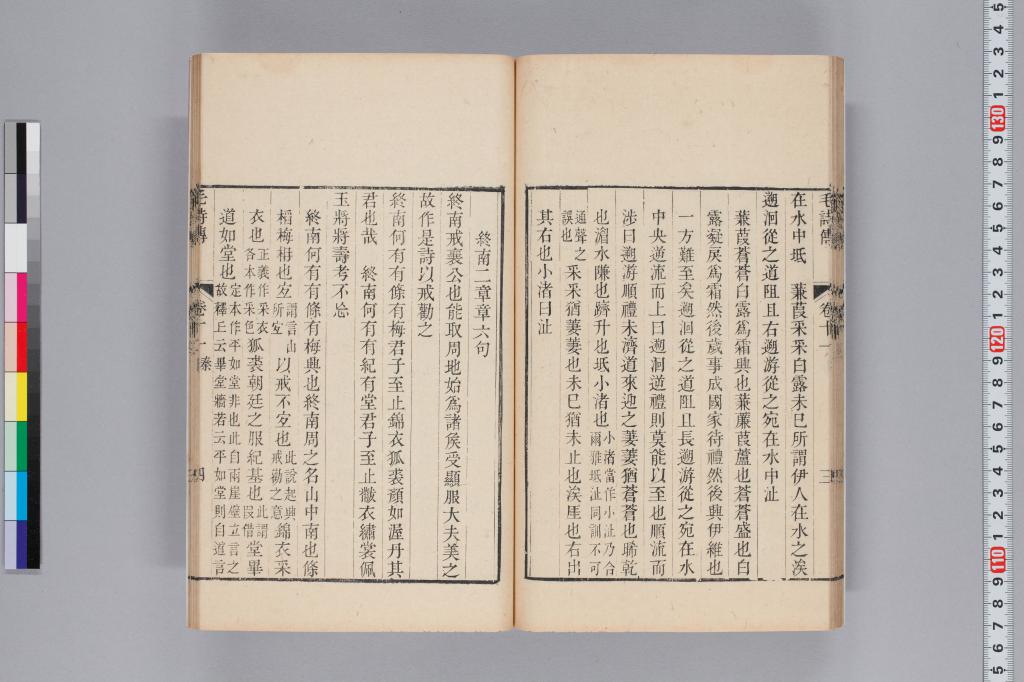 在水中坻　蒹葭采采白露未已所謂伊人在水之涘
遡洄從之道阻且右遡游從之宛在水中沚
蒹葭蒼蒼白露爲霜興也蒹薕葭蘆也蒼蒼盛也白
露凝戾爲霜然後歲事成國家待禮然後興伊維也
一方難至矣遡洄從之道阻且長遡游從之宛在水
中央逆流而上曰遡洄逆禮則莫能以至也順流而
涉曰遡游順禮未濟道來迎之萋萋猶蒼蒼也晞乾
也湄水隒也躋升也坻小渚也小渚當作小沚乃合爾雅坻沚同訓不可
通聲之誤也采采猶萋萋也未已猶未止也涘厓也右出
其右也小渚曰沚
毛詩傳
卷十一
三
終南二章章六句
終南戒襄公也能取周地始爲諸侯受顯服大夫美之
故作是詩以戒勸之
終南何有有條有梅君子至止錦衣狐裘顏如渥丹其
君也哉　終南何有有紀有堂君子至止黻衣繡裳佩
玉將將壽考不忘
終南何有有條有梅興也終南周之名山中南也條
稻梅枏也宐謂言山所宐以戒不宐也此說起興戒勸之意錦衣采
衣也正義作采衣各本作采色狐裘朝廷之服紀基也此謂叚借堂畢
道如堂也定本作平如堂非也此自兩崖壁立言之故釋丘云畢堂牆若云平如堂則自道言
毛詩傳
卷十一　秦
四
5
4
3
2
1
130
9
8
7
6
5
4
3
2
1
120
9
8
7
6
5
4
3
2
1
110
9
8
7
6
5